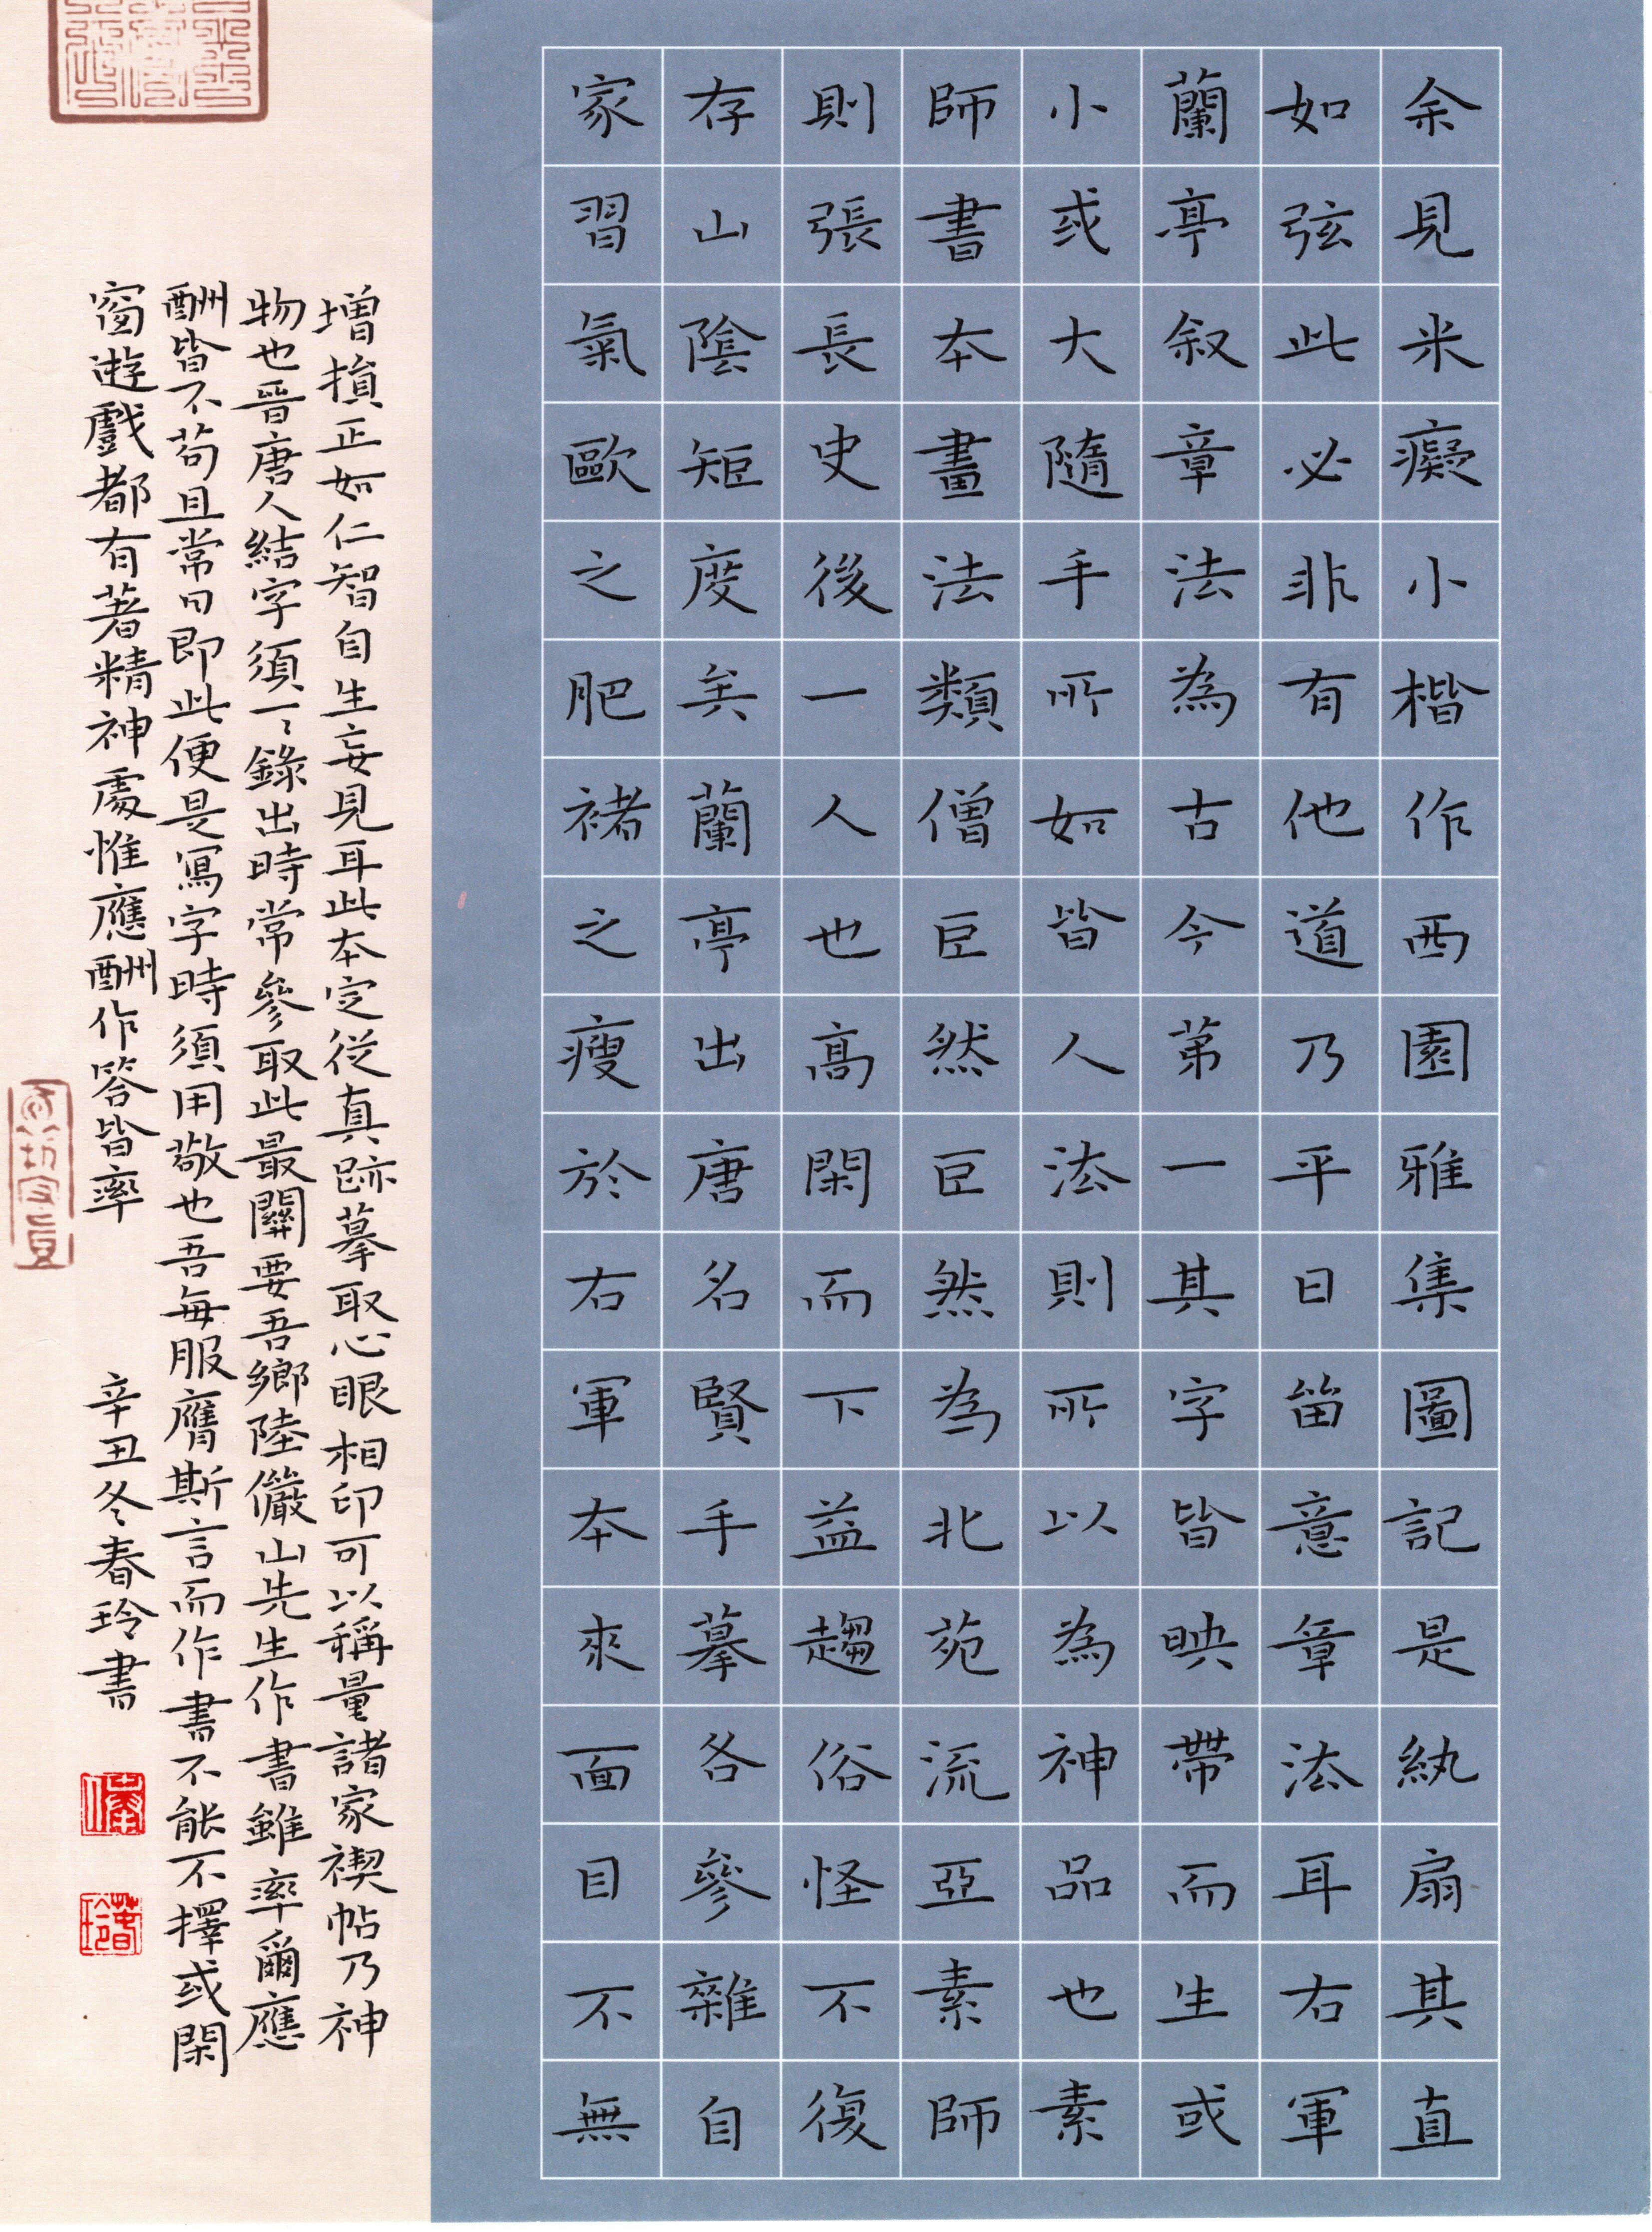 余見米癡小楷作西園雅集圖記是紈扇其直
如弦此必非有他道乃平日畱意章法耳右軍
蘭亭叙章法為古今第一其字皆映帶而生或
小或大隨手所如皆人法則所以為神品也素
師書本畫法類僧巨然巨然為北苑流亞素師
則張長史後一人也高閑而下益趨俗怪不復
存山陰矩度矣蘭亭出唐名賢手摹各參雜自
家習氣歐之肥褚之瘦於右軍本來面目不無
增損正如仁智自生妄見耳此本定從真跡摹取心眼相印可以稱量諸家禊帖乃神
物也晉唐人結字須一一錄出時常參取此最關要吾鄉陸儼山先生作書雖率爾應
酬皆不苟且常曰即此便是寫字時須用敬也吾每服膺斯言而作書不能不擇或閑
窗遊戲都有著精神處惟應酬作答皆率
辛丑冬春玲書